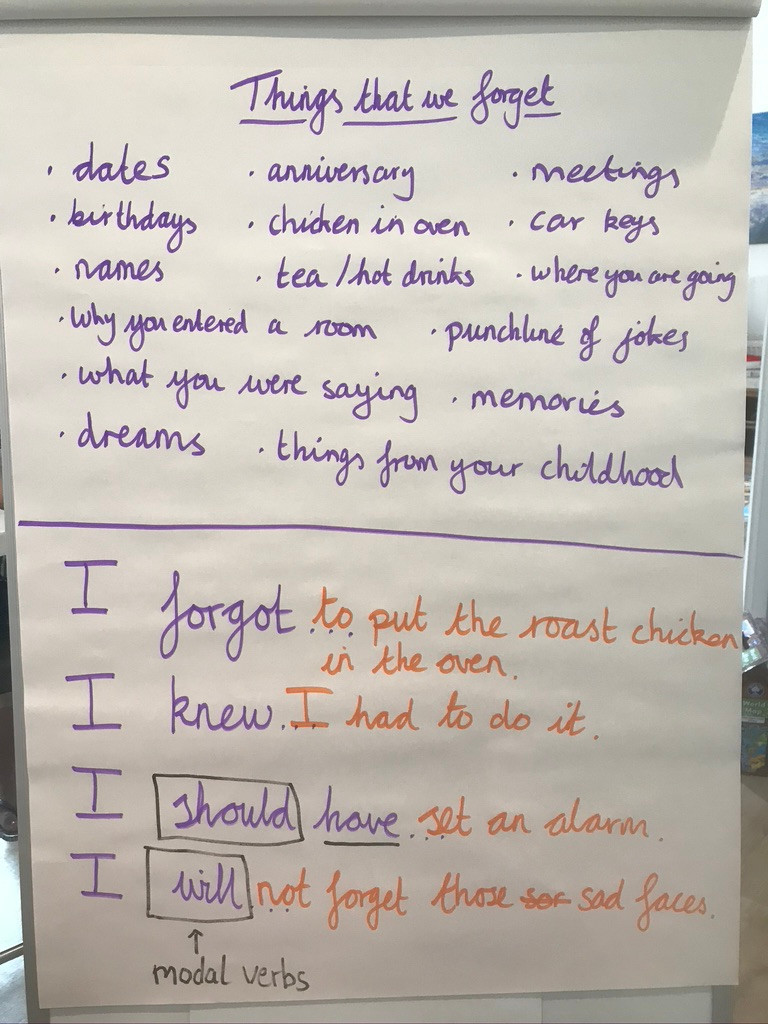 Things that we forget
· dates · anniversary · meetings
· birthdays · chicken in oven · car keys
· names · tea / hot drinks · where you are going
· why you entered a room · punchline of jokes
· what you were saying · memories
· dreams · things from your childhood
I forgot to put the roast chicken
in the oven.
I knew I had to do it.
I should have set an alarm.
I will not forget those sad faces.
↑
modal verbs